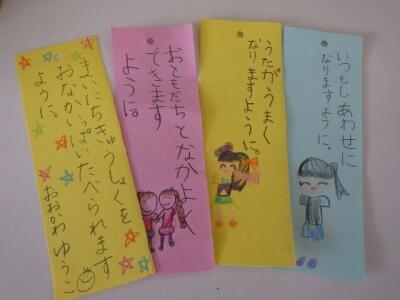 まいにちきゅうしょくを
おなかいっぱいたべられます
ように。
おおかわ ゆうこ
おともだちとなかよく
できます
ように。
うたがうまく
なりますように。
いつもしあわせに
なりますように。